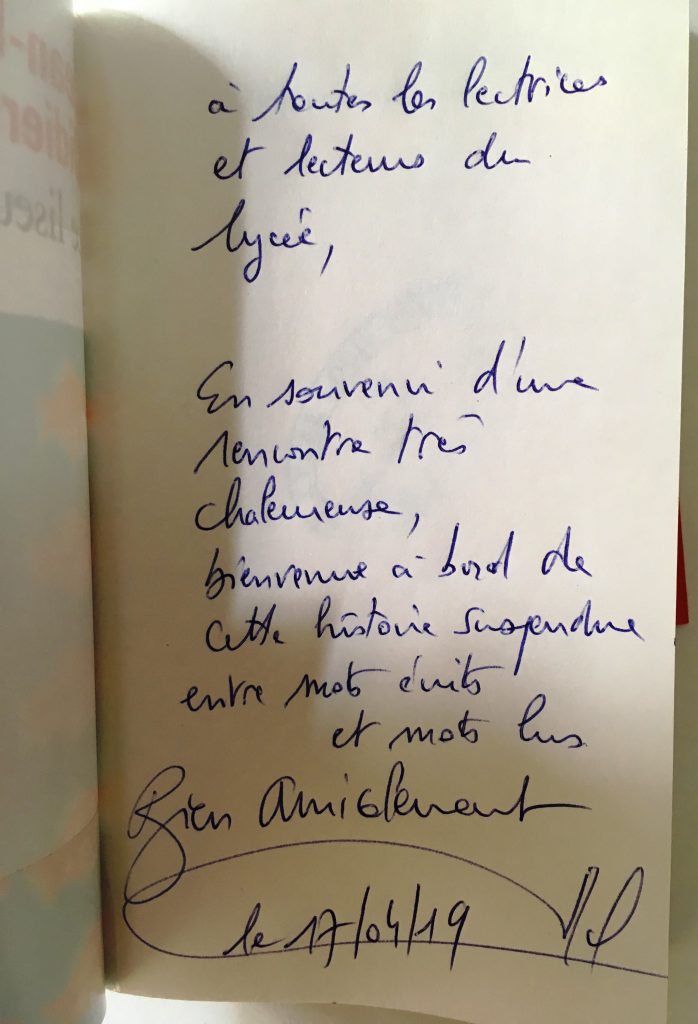 à toutes les lectrices
et lecteurs du
lycée,
En souvenir d'une
rencontre très
chaleureuse,
bienvenue à bord de
cette histoire suspendue
entre mots écrits
et mots lus
Bien Amicalement
le 17/04/19